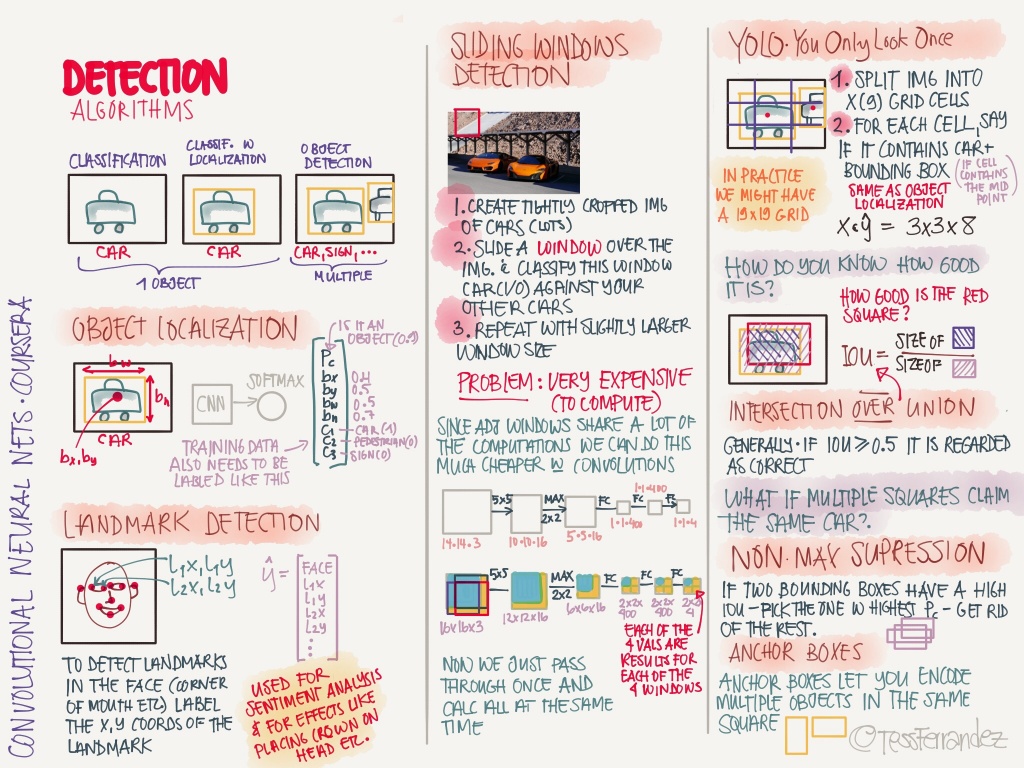 CONVOLUTIONAL NEURAL NETS · COURSERA
DETECTION
ALGORITHMS
CLASSIFICATION
CLASSIF. W
LOCALIZATION
OBJECT
DETECTION
CAR
CAR
CAR, SIGN, ...
1 OBJECT
MULTIPLE
OBJECT LOCALIZATION
bw
bh
CAR
bx, by
CNN
SOFTMAX
IS IT AN
OBJECT (0.9)
Pc
bx 0.4
by 0.5
bw 0.5
bh 0.7
C1 CAR (1)
C2 PEDESTRIAN (0)
C3 SIGN (0)
TRAINING DATA
ALSO NEEDS TO BE
LABLED LIKE THIS
LANDMARK DETECTION
L1X, L1Y
L2X, L2Y
ŷ =
FACE
L1X
L1Y
L2X
L2Y
TO DETECT LANDMARKS
IN THE FACE (CORNER
OF MOUTH ETC) LABEL
THE X,Y COORDS OF THE
LANDMARK
USED FOR
SENTIMENT ANALYSIS
& FOR EFFECTS LIKE
PLACING CROWN ON
HEAD ETC.
SLIDING WINDOWS
DETECTION
1. CREATE TIGHTLY CROPPED IMG
OF CARS (LOTS)
2. SLIDE A WINDOW OVER THE
IMG. & CLASSIFY THIS WINDOW
CAR (1/0) AGAINST YOUR
OTHER CARS
3. REPEAT WITH SLIGHTLY LARGER
WINDOW SIZE
PROBLEM: VERY EXPENSIVE
(TO COMPUTE)
SINCE ADJ WINDOWS SHARE A LOT OF
THE COMPUTATIONS WE CAN DO THIS
MUCH CHEAPER W CONVOLUTIONS
5x5 MAX 2x2 FC FC FC
1·1·400
14·14·3 10·10·16 5·5·16 1·1·400 1·1·4
5x5 MAX 2x2 FC FC FC
16x16x3 12x12x16 6x6x16 2x2x400 2x2x400 2x2x4
EACH OF THE
4 VALS ARE
RESULTS FOR
EACH OF THE
4 WINDOWS
NOW WE JUST PASS
THROUGH ONCE AND
CALC ALL AT THE SAME
TIME
YOLO · You Only Look Once
1. SPLIT IMG INTO
X (9) GRID CELLS
2. FOR EACH CELL, SAY
IF IT CONTAINS CAR +
BOUNDING BOX
(IF CELL
CONTAINS
THE MID
POINT)
SAME AS OBJECT
LOCALIZATION
IN PRACTICE
WE MIGHT HAVE
A 19x19 GRID
X & ŷ = 3x3x8
HOW DO YOU KNOW HOW GOOD
IT IS?
HOW GOOD IS THE RED
SQUARE?
IOU = SIZE OF
SIZE OF
INTERSECTION OVER UNION
GENERALLY · IF IOU ≥ 0.5 IT IS REGARDED
AS CORRECT
WHAT IF MULTIPLE SQUARES CLAIM
THE SAME CAR?
NON · MAX SUPRESSION
IF TWO BOUNDING BOXES HAVE A HIGH
IOU - PICK THE ONE W HIGHEST Pc - GET RID
OF THE REST.
ANCHOR BOXES
ANCHOR BOXES LET YOU ENCODE
MULTIPLE OBJECTS IN THE SAME
SQUARE
©TessFerrandez